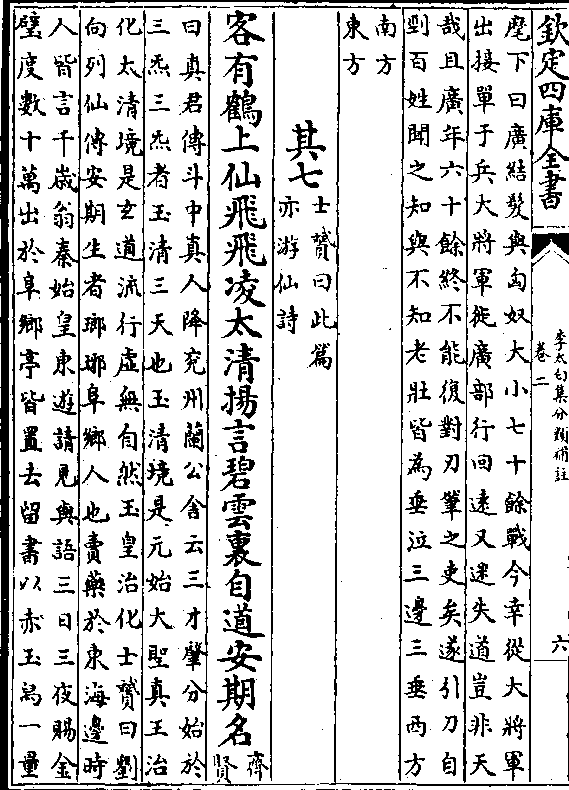 欽定四庫全書
李太白集分類補註
卷二
六
麾下曰廣結髮與匈奴大小七十餘戰今幸從大將軍
出接單于兵大將軍徙廣部行回遠又迷失道豈非天
哉且廣年六十餘終不能復對刀筆之吏矣遂引刀自
剄百姓聞之知與不知老壯皆為垂泣三邊三垂西方
南方
東方
其七
士贇曰此篇
亦游仙詩
客有鶴上仙飛飛凌太清揚言碧雲裏自道安期名
齊
賢
曰真君傳斗中真人降兖州蘭公舍云三才肇分始於
三炁三炁者玉清三天也玉清境是元始大聖真王治
化太清境是玄道流行虛無自然玉皇治化士贇曰劉
向列仙傳安期生者瑯琊阜鄉人也賣藥於東海邊時
人皆言千歲翁秦始皇東遊請見與語三日三夜賜金
璧度數十萬出於阜鄉亭皆置去留書以赤玉舄一量